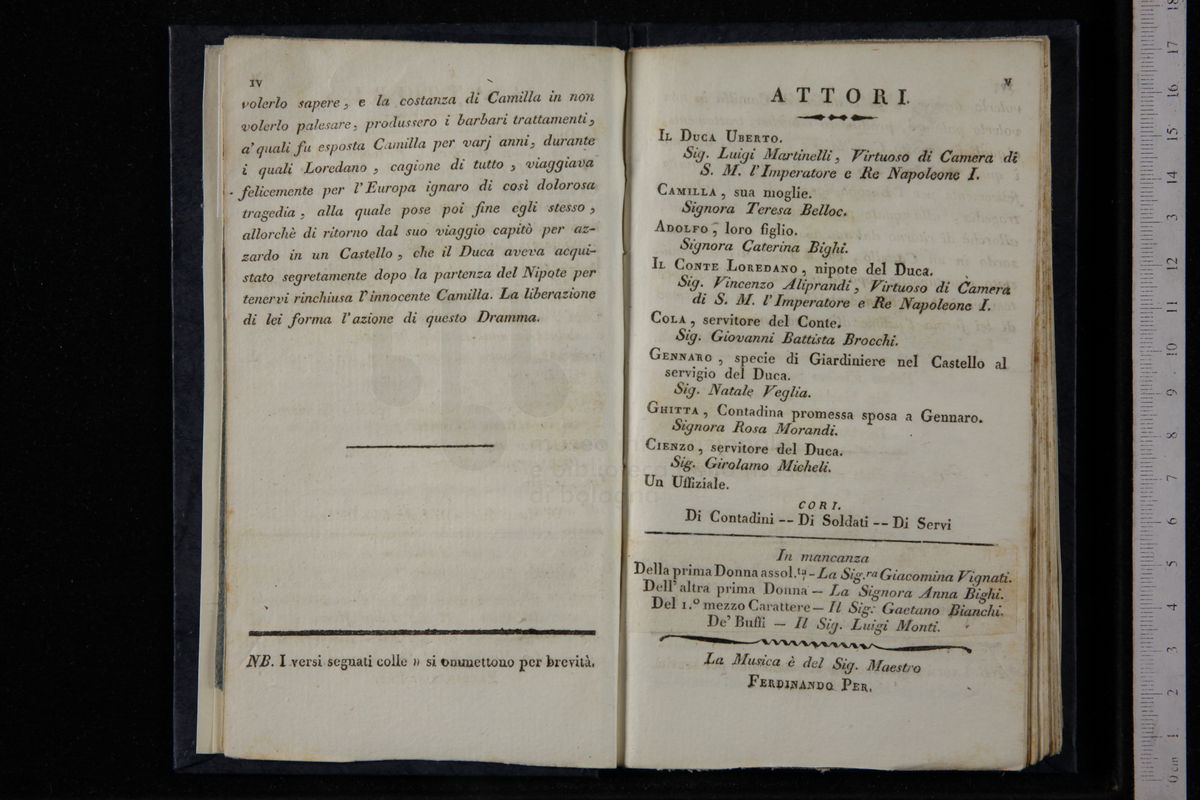 IV
volerlo sapere, e la costanza di Camilla in non
volerlo palesare, produssero i barbari trattamenti,
a' quali fu esposta Camilla per varj anni, durante
i quali Loredano, cagione di tutto, viaggiava
felicemente per l'Europa ignaro di così dolorosa
tragedia, alla quale pose poi fine egli stesso,
allorchè di ritorno dal suo viaggio capitò per az-
zardo in un Castello, che il Duca aveva acqui-
stato segretamente dopo la partenza del Nipote per
tenervi rinchiusa l'innocente Camilla. La liberazione
di lei forma l'azione di questo Dramma.
NB. I versi segnati colle » si ommettono per brevità.
V
ATTORI.
IL DUCA UBERTO.
Sig. Luigi Martinelli, Virtuoso di Camera di
S. M. l'Imperatore e Re Napoleone I.
CAMILLA, sua moglie.
Signora Teresa Belloc.
ADOLFO, loro figlio.
Signora Caterina Bighi.
IL CONTE LOREDANO, nipote del Duca.
Sig. Vincenzo Aliprandi, Virtuoso di Camera
di S. M. l'Imperatore e Re Napoleone I.
COLA, servitore del Conte.
Sig. Giovanni Battista Brocchi.
GENNARO, specie di Giardiniere nel Castello al
servigio del Duca.
Sig. Natale Veglia.
GHITTA, Contadina promessa sposa a Gennaro.
Signora Rosa Morandi.
CIENZO, servitore del Duca.
Sig. Girolamo Micheli.
Un Uffiziale.
CORI.
Di Contadini -- Di Soldati -- Di Servi
In mancanza
Della prima Donna assol.ta - La Sig.ra Giacomina Vignati.
Dell' altra prima Donna — La Signora Anna Bighi.
Del 1.° mezzo Carattere — Il Sig. Gaetano Bianchi.
De' Buffi — Il Sig. Luigi Monti.
La Musica è del Sig. Maestro
FERDINANDO PER.
0 cm 1 2 3 4 5 6 7 8 9 10 11 12 13 14 15 16 17 18